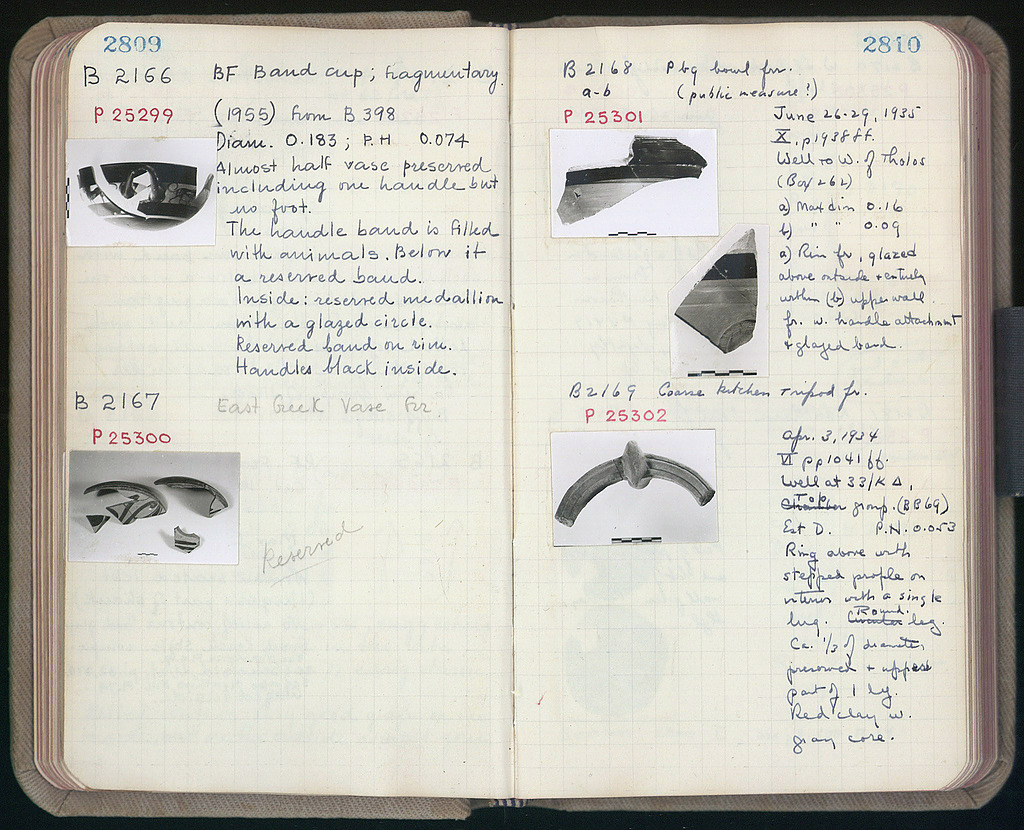 2809
B 2166 BF Band cup; fragmentary
P 25299 (1955) from B 398
Diam. 0.183; P.H 0.074
Almost half vase preserved
including one handle but
no foot.
The handle band is filled
with animals. Below it
a reserved band.
Inside: reserved medallion
with a glazed circle.
Reserved band on rim.
Handles black inside.
B 2167 East Greek Vase Frr.
P 25300
Reserved
2810
B 2168 Pbg bowl frr.
a-b (public measure?)
P 25301
June 26-29, 1935
X, p1938 ff.
Well to W. of Tholos
(Box 262)
a) Max dim 0.16
b) " " 0.09
a) Rim fr, glazed
above outside + entirely
within (b) upper wall
fr. w. handle attachment
+ glazed band.
B 2169 Coarse kitchen tripod fr.
P 25302
Apr. 3, 1934
VI pp1041 ff.
Well at 33/ΚΔ,
Top
Chamber group. (BB69)
Est D. P.H. 0.053
Ring above with
stepped profile on
interior with a single
Round
lug. Circular leg.
Ca. 1/3 of diameter
preserved + upper
part of 1 leg.
Red clay w.
gray core.